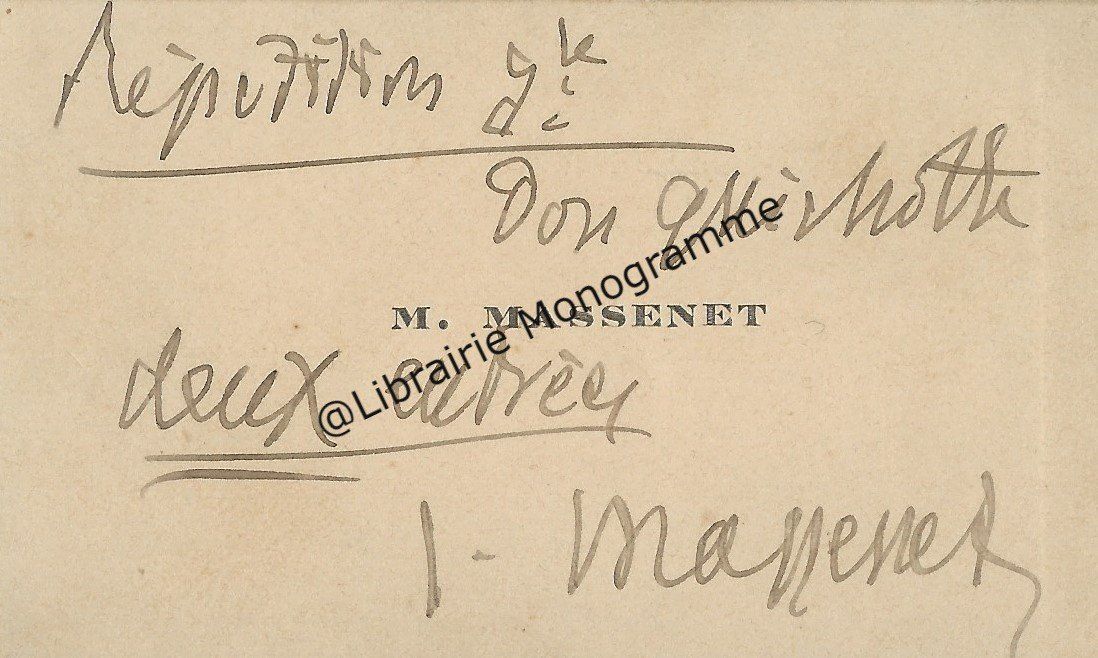 Répétition gle
de
Don Quichotte
M. MASSENET
@Librairie Monogramme
deux entrées
J. Massenet